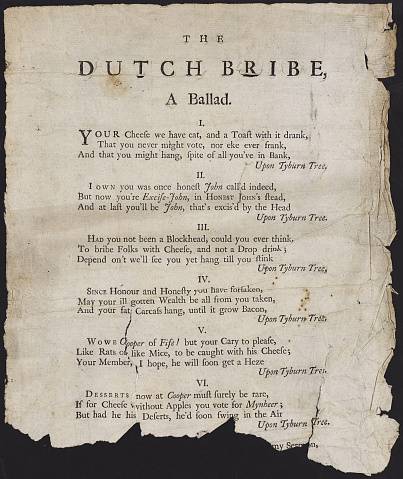 THE
DUTCH BRIBE,
A Ballad.
I.
YOUR Cheese we have eat, and a Toast with it drank,
That you never might vote, nor eke ever frank,
And that you might hang, spite of all you've in Bank,
Upon Tyburn Tree.
II.
I OWN you was once honest John call'd indeed,
But now you're Excise-John, in HONEST JOHN's stead,
And at last you'll be John, that's excis'd by the Head
Upon Tyburn Tree.
III.
HAD you not been a Blockhead, could you ever think,
To bribe Folks with Cheese, and not a Drop drink;
Depend on't we'll see you yet hang till you stink
Upon Tyburn Tree,
IV.
SINCE Honour and Honesty you have forsaken,
May your ill gotten Wealth be all from you taken,
And your fat Carcass hang, until it grow Bacon,
Upon Tyburn Tree,
V.
WOWE Cooper of Fife! but your Cary to please,
Like Rats or like Mice, to be caught with his Cheese;
Your Member, I hope, he will soon get a Heze
Upon Tyburn Tree.
VI.
DESSERTS now at Cooper must surely be rare,
If for Cheese without Apples you vote for Mynheer;
But had he his Deserts, he'd soon swing in the Air
Upon Tyburn Tree.